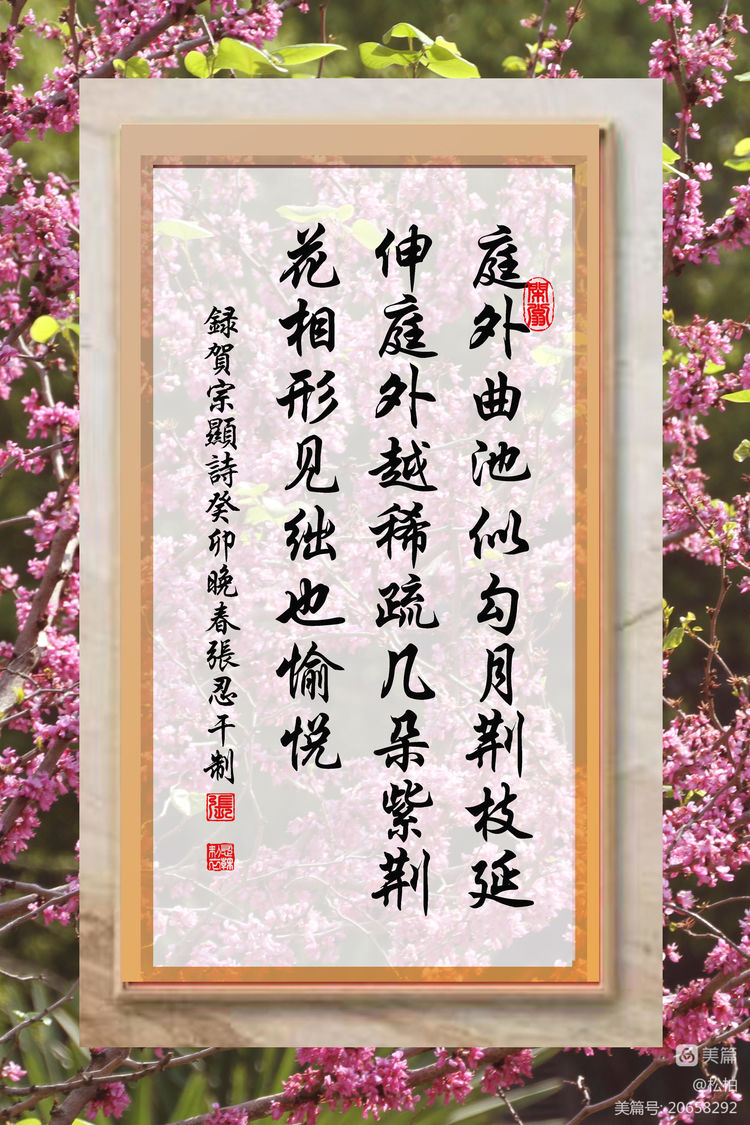 庭外曲池似勾月荆枝延
伸庭外越稀疏几朵紫荆
花相形见绌也愉悦
録賀宗顯詩癸卯晚春張忍干制
張
美篇
@松柏
美篇号: 20658292